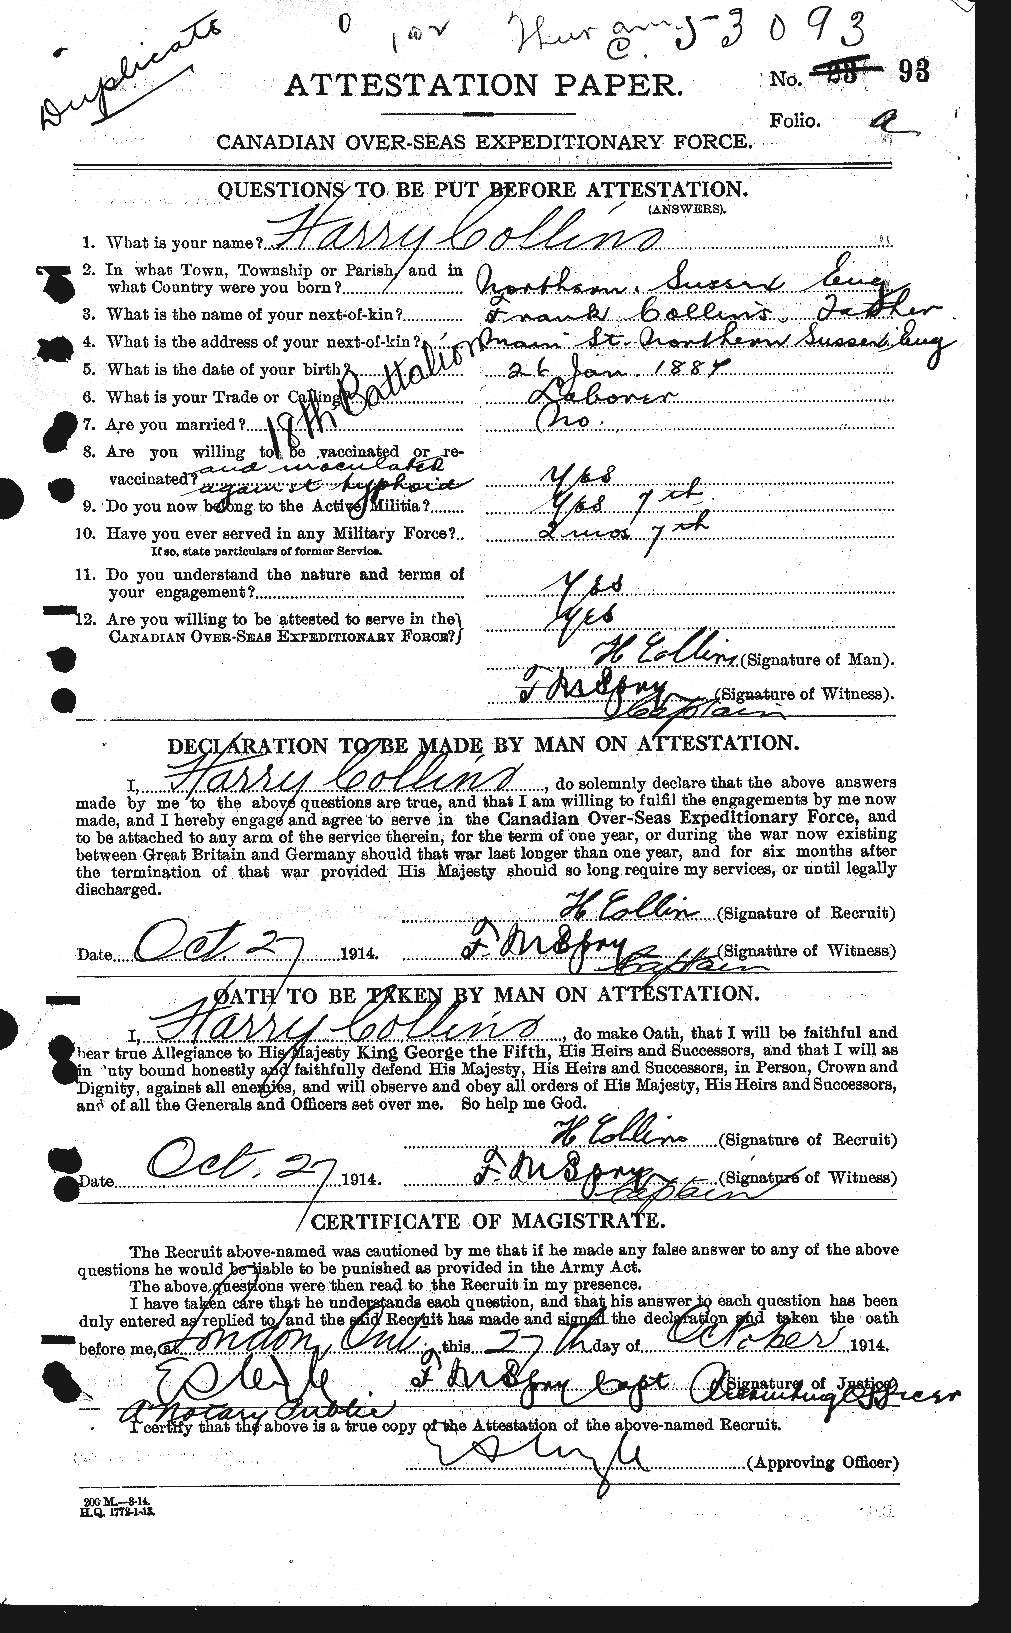 Duplicate
53093
ATTESTATION PAPER.
No. 93
Folio. a
CANADIAN OVER-SEAS EXPEDITIONARY FORCE.
QUESTIONS TO BE PUT BEFORE ATTESTATION.
(ANSWERS).
1. What is your name? Harry Collins
2. In what Town, Township or Parish, and in
what Country were you born? Northern, Sussex Eng
3. What is the name of your next-of-kin? Frank Collins, Father
4. What is the address of your next-of-kin? Main St. Northern Sussex, Eng
5. What is the date of your birth? 26 Jan. 1884
6. What is your Trade or Calling? Laborer
18th Battalion
7. Are you married? No.
8. Are you willing to be vaccinated or re-
vaccinated? and inoculated against typhoid Yes
9. Do you now belong to the Active Militia? Yes 7th
10. Have you ever served in any Military Force? 2 mos 7th
If so, state particulars of former Service.
11. Do you understand the nature and terms of
your engagement? Yes
12. Are you willing to be attested to serve in the Yes
CANADIAN OVER-SEAS EXPEDITIONARY FORCE?
H Collins (Signature of Man).
Captain (Signature of Witness).
DECLARATION TO BE MADE BY MAN ON ATTESTATION.
I, Harry Collins, do solemnly declare that the above answers
made by me to the above questions are true, and that I am willing to fulfil the engagements by me now
made, and I hereby engage and agree to serve in the Canadian Over-Seas Expeditionary Force, and
to be attached to any arm of the service therein, for the term of one year, or during the war now existing
between Great Britain and Germany should that war last longer than one year, and for six months after
the termination of that war provided His Majesty should so long require my services, or until legally
discharged.
H Collin (Signature of Recruit)
Date Oct. 27 1914. Captain (Signature of Witness)
OATH TO BE TAKEN BY MAN ON ATTESTATION.
I, Harry Collins, do make Oath, that I will be faithful and
bear true Allegiance to His Majesty King George the Fifth, His Heirs and Successors, and that I will as
in duty bound honestly and faithfully defend His Majesty, His Heirs and Successors, in Person, Crown and
Dignity, against all enemies, and will observe and obey all orders of His Majesty, His Heirs and Successors,
and of all the Generals and Officers set over me. So help me God.
H Collins (Signature of Recruit)
Date Oct. 27 1914. Captain (Signature of Witness)
CERTIFICATE OF MAGISTRATE.
The Recruit above-named was cautioned by me that if he made any false answer to any of the above
questions he would be liable to be punished as provided in the Army Act.
The above questions were then read to the Recruit in my presence.
I have taken care that he understands each question, and that his answer to each question has been
duly entered as replied to, and the said Recruit has made and signed the declaration and taken the oath
before me, at London, Ont. this 27th day of October 1914.
Capt Recruiting Officer (Signature of Justice)
A Notary Public
I certify that the above is a true copy of the Attestation of the above-named Recruit.
(Approving Officer)
200 M.—8-14.
H.Q. 1772-1-13.